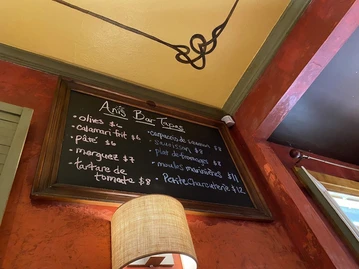 Ani's Bar Tapas
• olives $4
• calamari frit $6
• pâté $6
• merguez $7
• tartare de
tomate $8
• saucisson $8
• plat de fromages $8
• moules marinières $11
• Petite Charcuterie $12